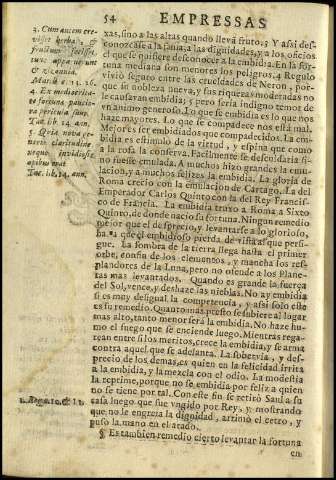 54 EMPRESSAS
3. Cum autem cre-
visset herba, &
fructum fecisset,
tunc apparuerunt
& zizania.
Matth. c. 13. 26.
4. Ex mediocrita-
te fortunæ pauciora
pericula sunt.
Tac. lib. 14. ann.
5. Quia nova ge-
neris claritudine
neque invidiosis
opibus erat
Tac. lib. 14. ann.
1. Reg. c. 10. & 11.
xas, sino a las altas quando lleva fruto. 3 Y assi des-
conozcase a la fama, a las dignidades, y a los oficios
el que se quisiere desconocer a la embidia. En la for-
tuna mediana son menores los peligros. 4 Regulo
vivió seguro entre las crueldades de Neron, por-
que su nobleza nueva, y sus riquezas moderadas no
le causavan embidia; 5 pero seria indigno temor de
un animo generoso. Lo que se embidia es lo que nos
haze mayores. Lo que se compadece nos está mal.
Mejor es ser embidiados que compadecidos. La em-
bidia es estimulo de la virtud, y espina que como
a la rosa la conserva. Facilmente se descuidaria si
no fuesse emulada. A muchos hizo grandes la emu-
lacion, y a muchos felizes la embidia. La gloria de
Roma crecio con la emulacion de Cartago. La del
Emperador Carlos Quinto con la del Rey Francis-
co de Francia. La embidia truxo a Roma a Sixto
Quinto, de donde nacio su fortuna. Ningun remedio
mejor que el desprecio, y levantarse a lo glorioso,
hasta que el embidioso pierda de vista al que persi-
gue. La sombra de la tierra llega hasta el primer
orbe, confin de los elementos, y mancha los res-
plandores de la Luna, pero no ofende a los Plane-
tas mas levantados. Quando es grande la fuerça
del Sol, vence, y deshaze las nieblas. No ay embidia
si es muy desigual la competencia, y assi solo este
es su remedio. Quanto mas presto se subiere al lugar
mas alto, tanto menor será la embidia. No haze hu-
mo el fuego que se enciende luego. Mientras rega-
tean entre si los meritos, crece la embidia, y se arma
contra aquel que se adelanta. La sobervia, y des-
precio de los demas, es quien en la felicidad irrita
a la embidia, y la mezcla con el odio. La modestia
la reprime, porque no se embidia por feliz a quien
no se tiene por tal. Con este fin se retiró Saul a su
casa luego que fue ungido por Rey, y mostrando
que no le engreia la dignidad, arrimó el cetro, y
puso la mano en el arado.
§ Es tambien remedio cierto levantar la fortuna
en